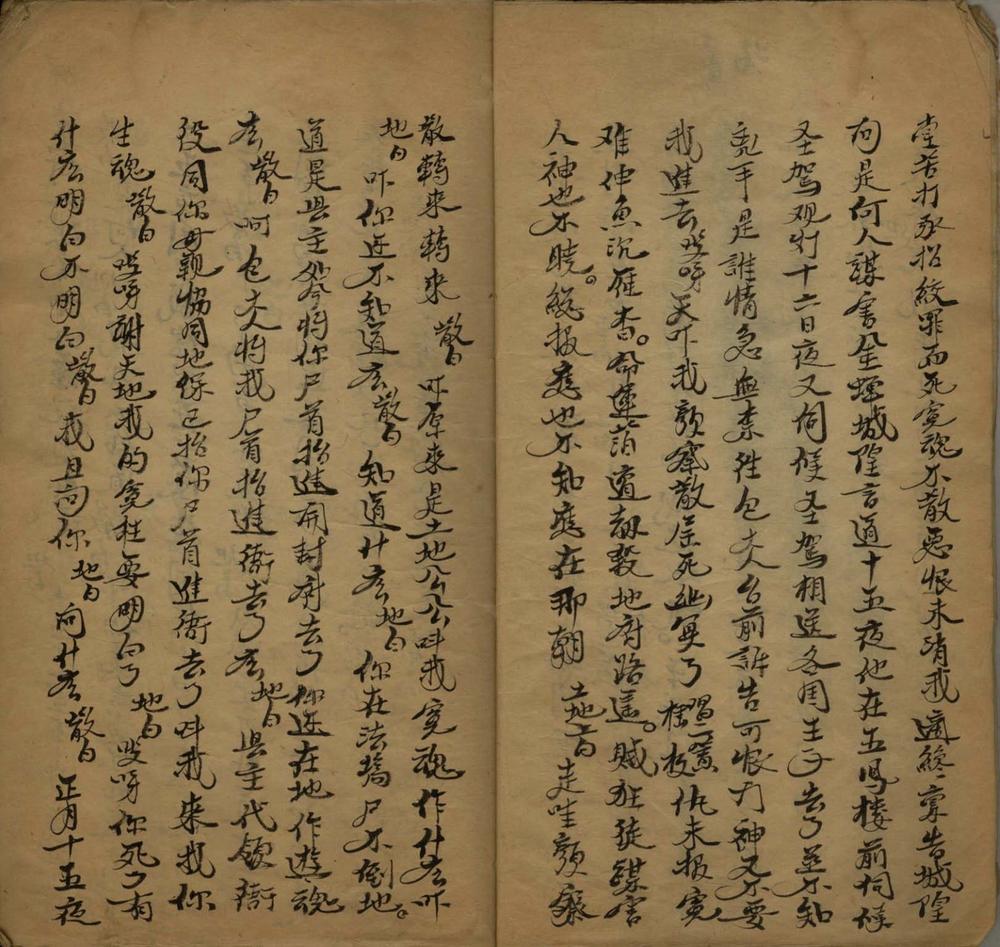 堂苦打承招绞罪而死寃魂不散恶恨未消我適終禀告城隍
问是何人謀害金蟬城隍言道十五夜他在五鳳楼前伺候
圣驾观灯十六日夜又伺候圣驾相送各国王子去了並不知
兇手是誰情急無柰往包大人台前訴告可恨门神又不要
我進去哎呀天吓我颜察散屈死幽冥了仇未报寃
难伸魚沉雁杳。命運薄遭刼殺地府路遥。贼狂徒謀害
人神也不晓。総报應也不知應在那朝 土地白 走哇颜察
散轉来轉来 散白 吓原来是土地公公呌我寃魂作什庅吓
地白 吓你还不知道庅 散白 知道什庅 地白 你在法塲尸不倒地。
道是县主 今将你尸首抬進開封府去了你还在地作遊魂
去 散白 呵包大人将我尸首抬進衙去了庅 地白 县主代领衙
役同你母親協同地保已抬你尸首進衙去了呌我来找你
生魂 散白 哎呀謝天地我的寃枉要明白了 地白 哎呀你死了有
什庅明白不明白 散白 我且问你 地白 问什庅 散白 正月十五夜